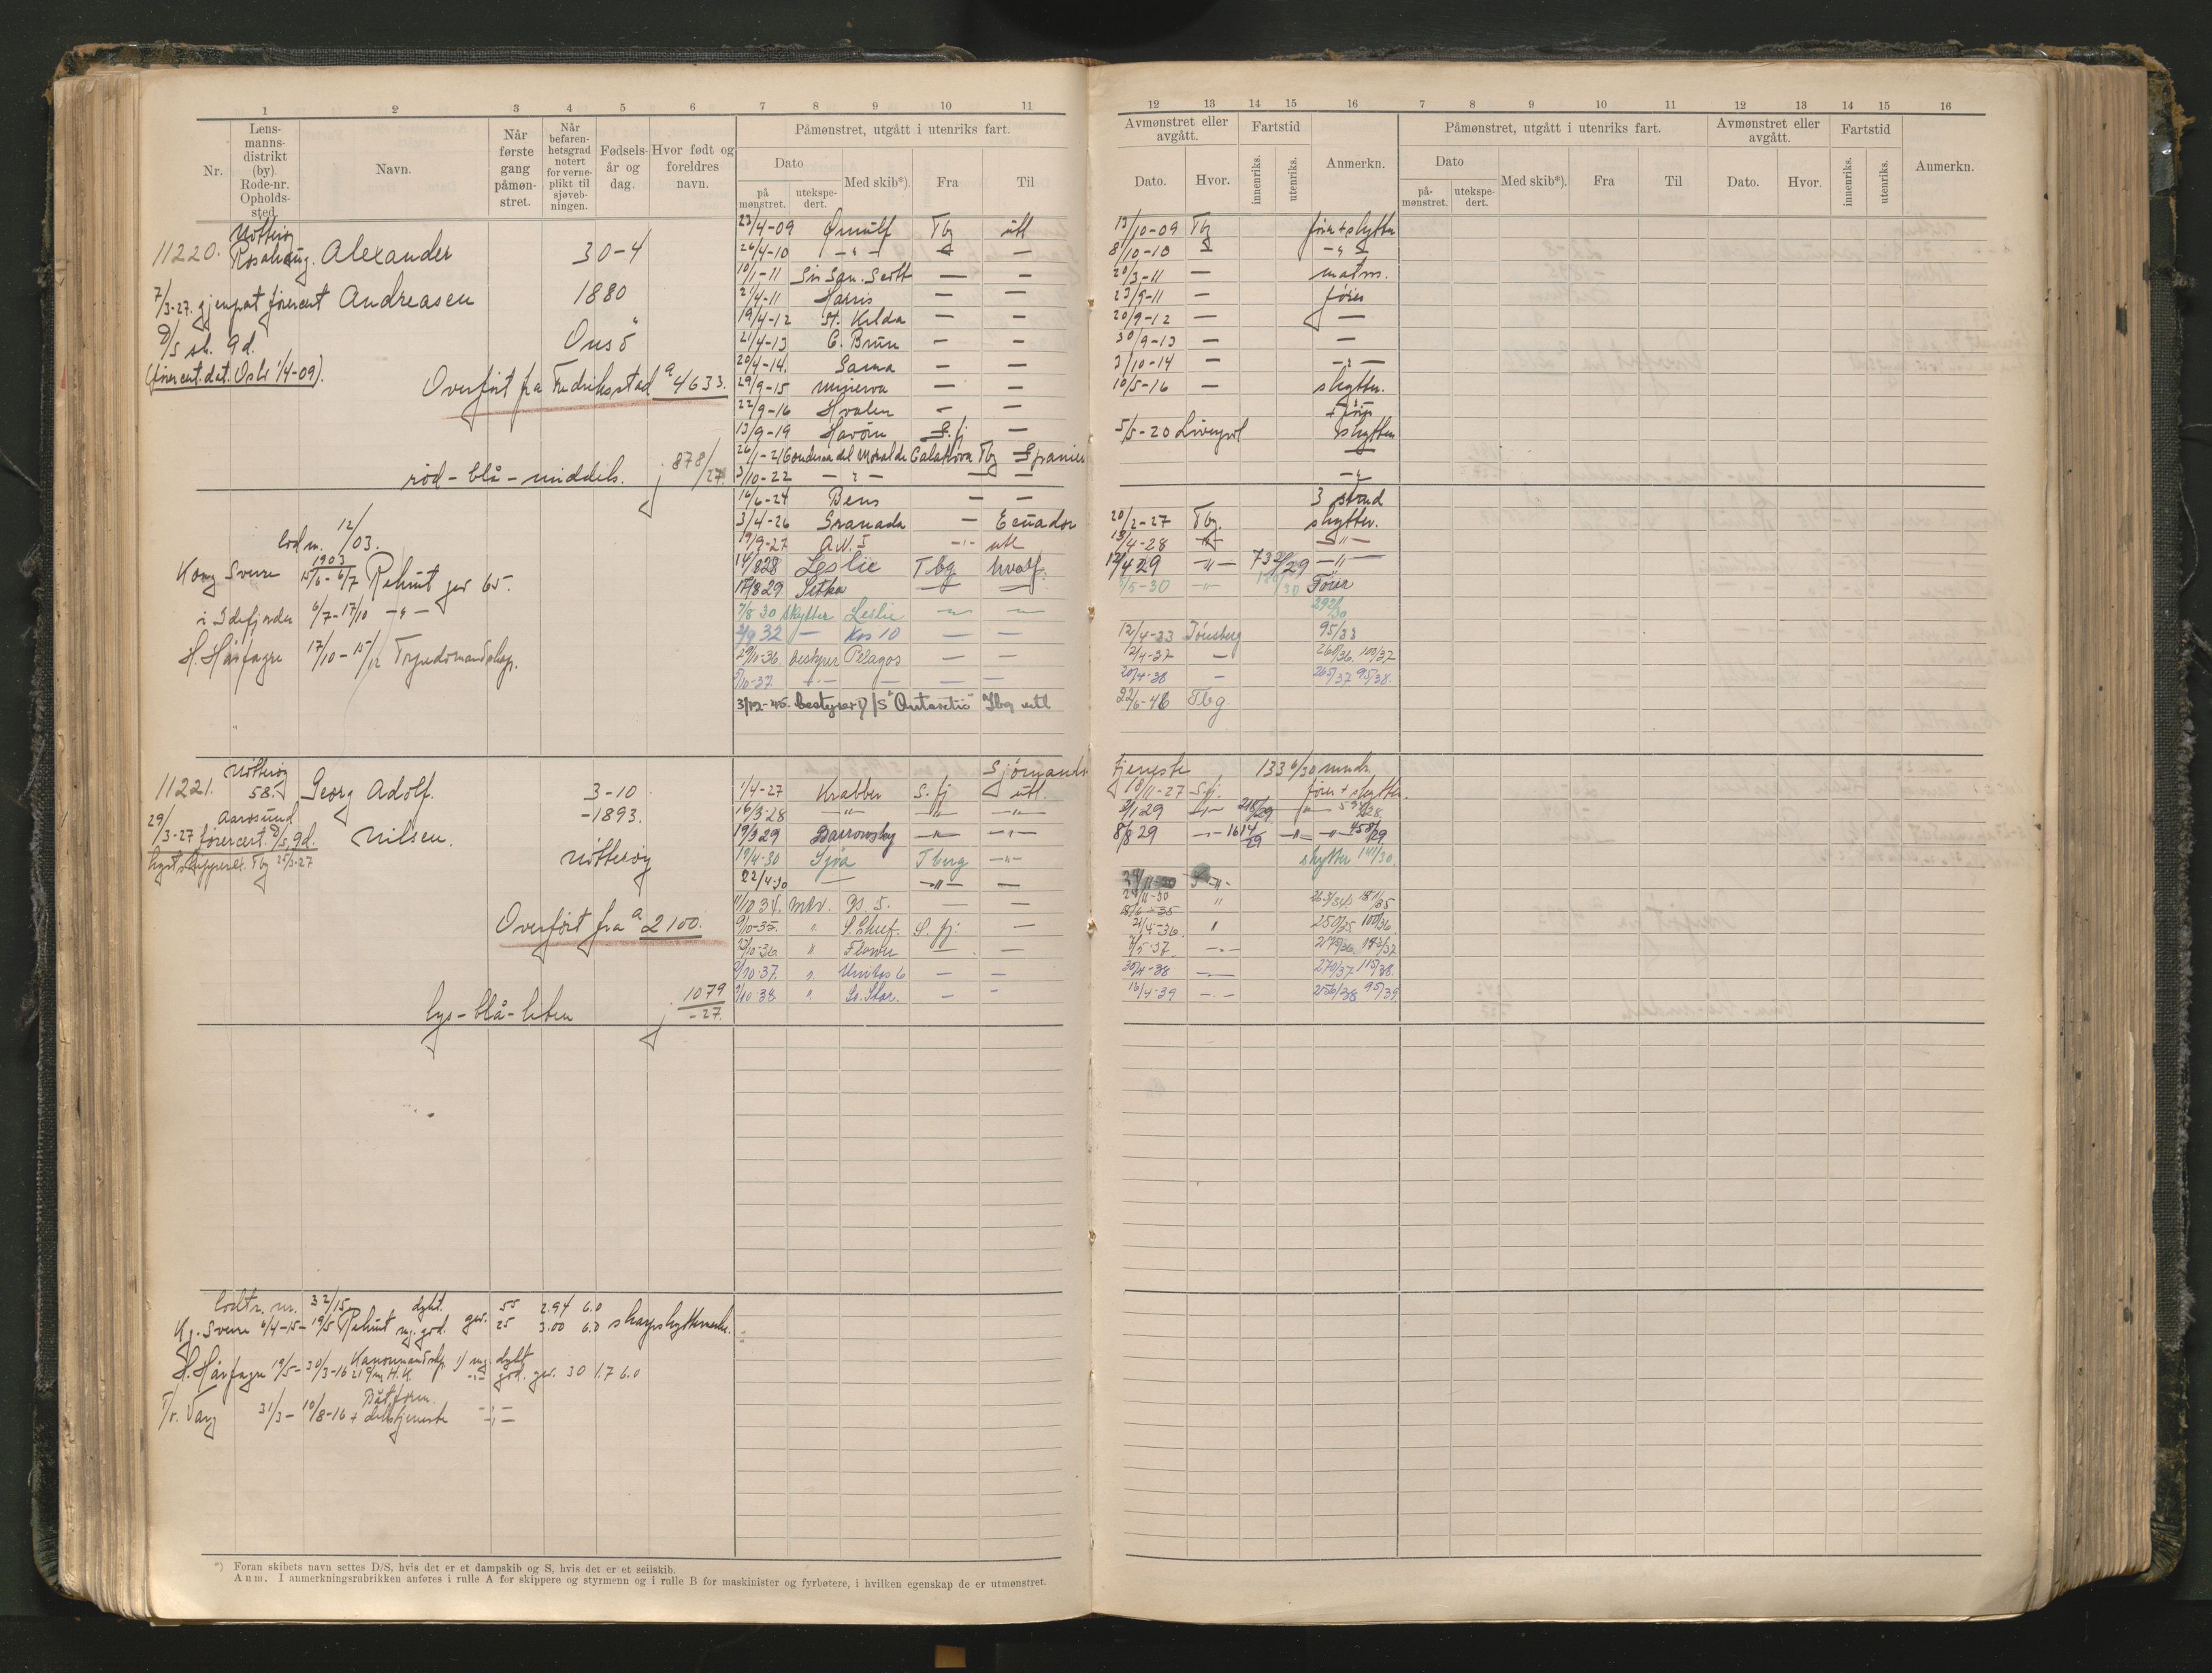 1 2 3 4 5 6 7 8 9 10 11
Nr.
Lens-
manns-
distrikt
(by).
Rode-nr.
Opholds-
sted.
Navn.
Når
første
gang
påmøn-
stret.
Når
befaren-
hetsgrad
notert
for verne-
plikt til
sjøveb-
ningen.
Fødsels-
år og
dag.
Hvor født og
foreldres
navn.
Påmønstret, utgått i utenriks fart.
Dato
på
mønstret.
utekspe-
dert.
Med skib*).
Fra
Til
Nøtterøy
11220. Rosahaug. Alexander 30-4
7/3-27. gjenpat førercert Andreasen 1880
D/S sk. 9d. Onsö
(førercert. dat. Oslo 1/4-09).
Overført fra Fredriksstad a 4633.
rød - blå - middels. j 878/27
23/4-09 Ørnulf Tbg utl
26/4-10 - " - - -
10/1-11 Sir San. Scott - -
2/4-11 Harris - -
19/4-12 St. Kilda - -
21/4-13 C. Brun - -
20/4-14. Sama - -
29/9-15 Minerva - -
22/9-16 Hvalen - -
13/9-19 Havörn S. fj -
Tbg Spanien
3/10-22 - " - - -
16/6-24 Bens - -
3/4-26 Granada - Ecuador
19/9-27 A.N. I -"- utl
14/8 28 Leslie Tbg hvalf.
17/8 29 Sitka - -
7/8 30 skytter Leslie - -
2/9 32 - Kos 10 - -
29/11-36. bestyrer Pelagos - -
5/10-37. -"- - - -
3/12-45. bestyrer D/S "Antarctic" Tbg utl
lod nr. 12/03.
Kong Sverre 1903 15/6 - 6/7 Rekrut gev 65.
i Idefjorden 6/7 - 17/10 - " -
H. Hårfagre 17/10 - 15/12 Torpedomandskap.
Nøtterøy
11221. 58. Georg Adolf. 3-10
29/3-27 Aarosund -1893.
førercert. D/S, 9d. Nilsen. Nøtterøy
kyst skipperex. Tbg 25/3-27
Overført fra a 2100.
lys - blå - liten j 1079/-27.
Sjømands
1/4-27 Krabben S. fj utl.
16/3-28 -"- -"- -"-
19/9 29 Barrowsby -"- -"-
19/4-30 Sjøa Tberg -"-
22/4-30 - -"- -
1/10 34. mdr. - -
9/10-35. " S. fj. -
13/10-36. " - -
9/10-37. " Unitas 6 - -
1/10-38 " - -
lodtr. nr. 32/15 dygt. 55 2.94 6.0
Kg. Sverre 6/4-15 - 19/5 Rekrut mg. god. gev. 25 3.00 6.0 skarpskyttermerke.
H. Hårfagre 19/5 - 30/3-16 Kanonmandskp. mg. dygt
21 c/m H. K. god. gev. 30 1.7 6.0
T/v. Varg 31/3 - 10/8-16 Båtform. + dekstjeneste - " -
*) Foran skibets navn settes D/S, hvis det er et dampskib og S, hvis det er et seilskib.
Anm. I anmerkningsrubrikken anføres i rulle A for skippere og styrmenn og i rulle B for maskinister og fyrbøtere, i hvilken egenskap de er utmønstret.
12 13 14 15 16 7 8 9 10 11 12 13 14 15 16
Avmønstret eller
avgått.
Dato.
Hvor.
Fartstid
innenriks.
utenriks.
Anmerkn.
Påmønstret, utgått i utenriks fart.
Dato
på-
mønstret.
utekspe-
dert.
Med skib*).
Fra
Til
Avmønstret eller
avgått.
Dato.
Hvor.
Fartstid
innenriks.
utenriks.
Anmerkn.
13/10-09 Tbg fører + skytter
8/10-10 - - " -
20/3-11 - matrs.
23/9-11 - fører
20/9-12 - -
30/9-13 - -
3/10-14 - - " -
10/5-16 - skytter.
5/5-20 Liverpool skytter
3 strmd
20/2-27 Tbg. skytter.
13/4-28 -"- -"-
12/4 29 -"- -"-
8/5-30 -"- Fører
292/30
12/4-33 Tönsberg 95/33
12/4-37 - 268/36. 100/37
20/4-38 - 265/37 95/38.
22/6-46 Tbg.
tjeneste 133 6/30 mndr
18/11-27 S. fj. fører + skytter.
2/1 29 -"- 218/29 -"-
8/8 29 -"- 1614/29 -"- 458/29
skytter 141/30
29/11-30 " 263/34 181/35
18/6-35
21/4-36. " 250/35 100/36
4/5-37 -"-
30/4-38 -"- 270/37 115/38.
16/4-39 -"- 256/38 95/39